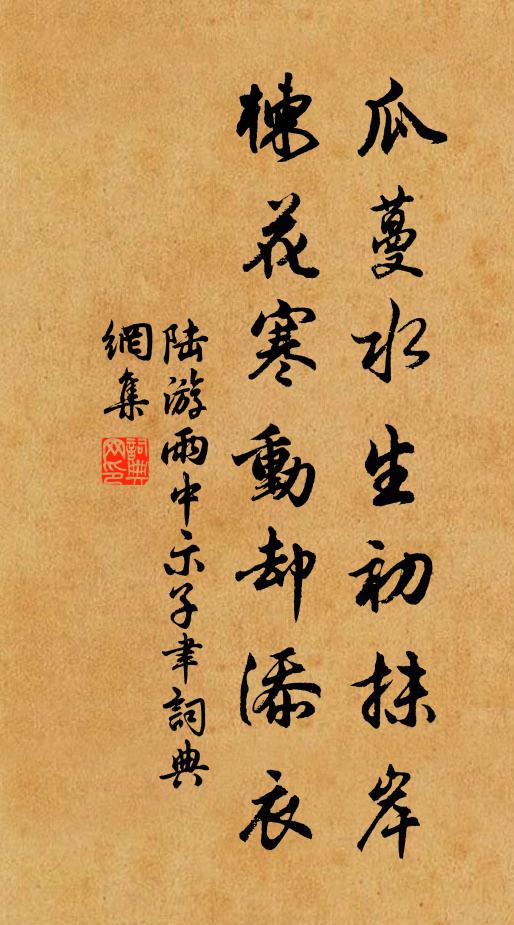 瓜蔓水生初抹岸
楝花寒動却添衣
陆游雨中示子聿詞典
網集
詞典
网印